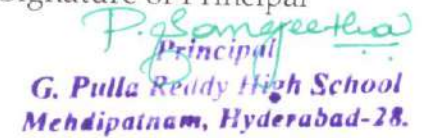 Signature of Principal
P. Sangeetha
Principal
G. Pulla Reddy High School
Mehdipatnam, Hyderabad-28.